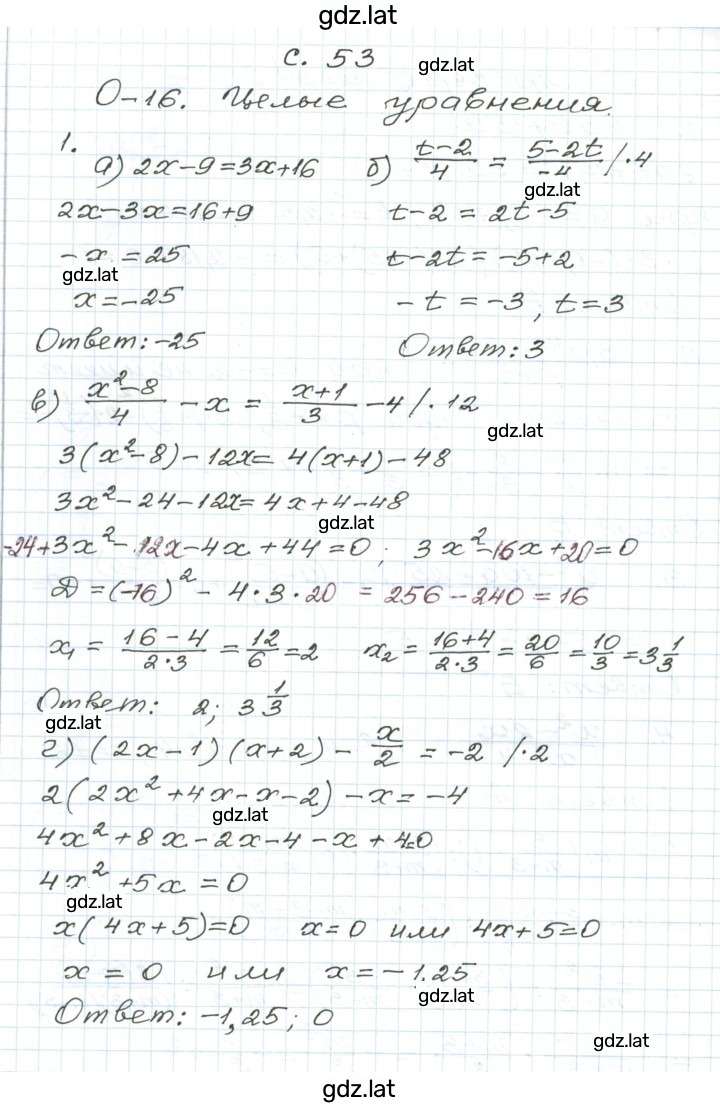 gdz.lat
с. 53
gdz.lat
О-16. Целые уравнения.
1.
а) 2x-9=3x+16 б) (t-2)/4 = (5-2t)/-4 /·4
gdz.lat
2x-3x=16+9 t-2 = 2t-5
-x = 25 t-2t = -5+2
gdz.lat
x=-25 -t = -3, t=3
Ответ: -25 Ответ: 3
в) (x²-8)/4 - x = (x+1)/3 - 4 /·12
gdz.lat
3(x²-8)-12x= 4(x+1)-48
3x²-24-12x= 4x+4-48
gdz.lat
-24+3x²-12x-4x+44=0; 3x²-16x+20=0
D = (-16)² - 4·3·20 = 256-240 = 16
x₁ = (16-4)/(2·3) = 12/6 = 2 x₂ = (16+4)/(2·3) = 20/6 = 10/3 = 3 1/3
Ответ: 2; 3 1/3
gdz.lat
г) (2x-1)(x+2) - x/2 = -2 /·2
2(2x²+4x-x-2)-x=-4
gdz.lat
4x²+8x-2x-4-x+4=0
4x²+5x=0
gdz.lat
x(4x+5)=0 x=0 или 4x+5=0
x = 0 или x=-1.25
gdz.lat
Ответ: -1,25; 0
gdz.lat
gdz.lat